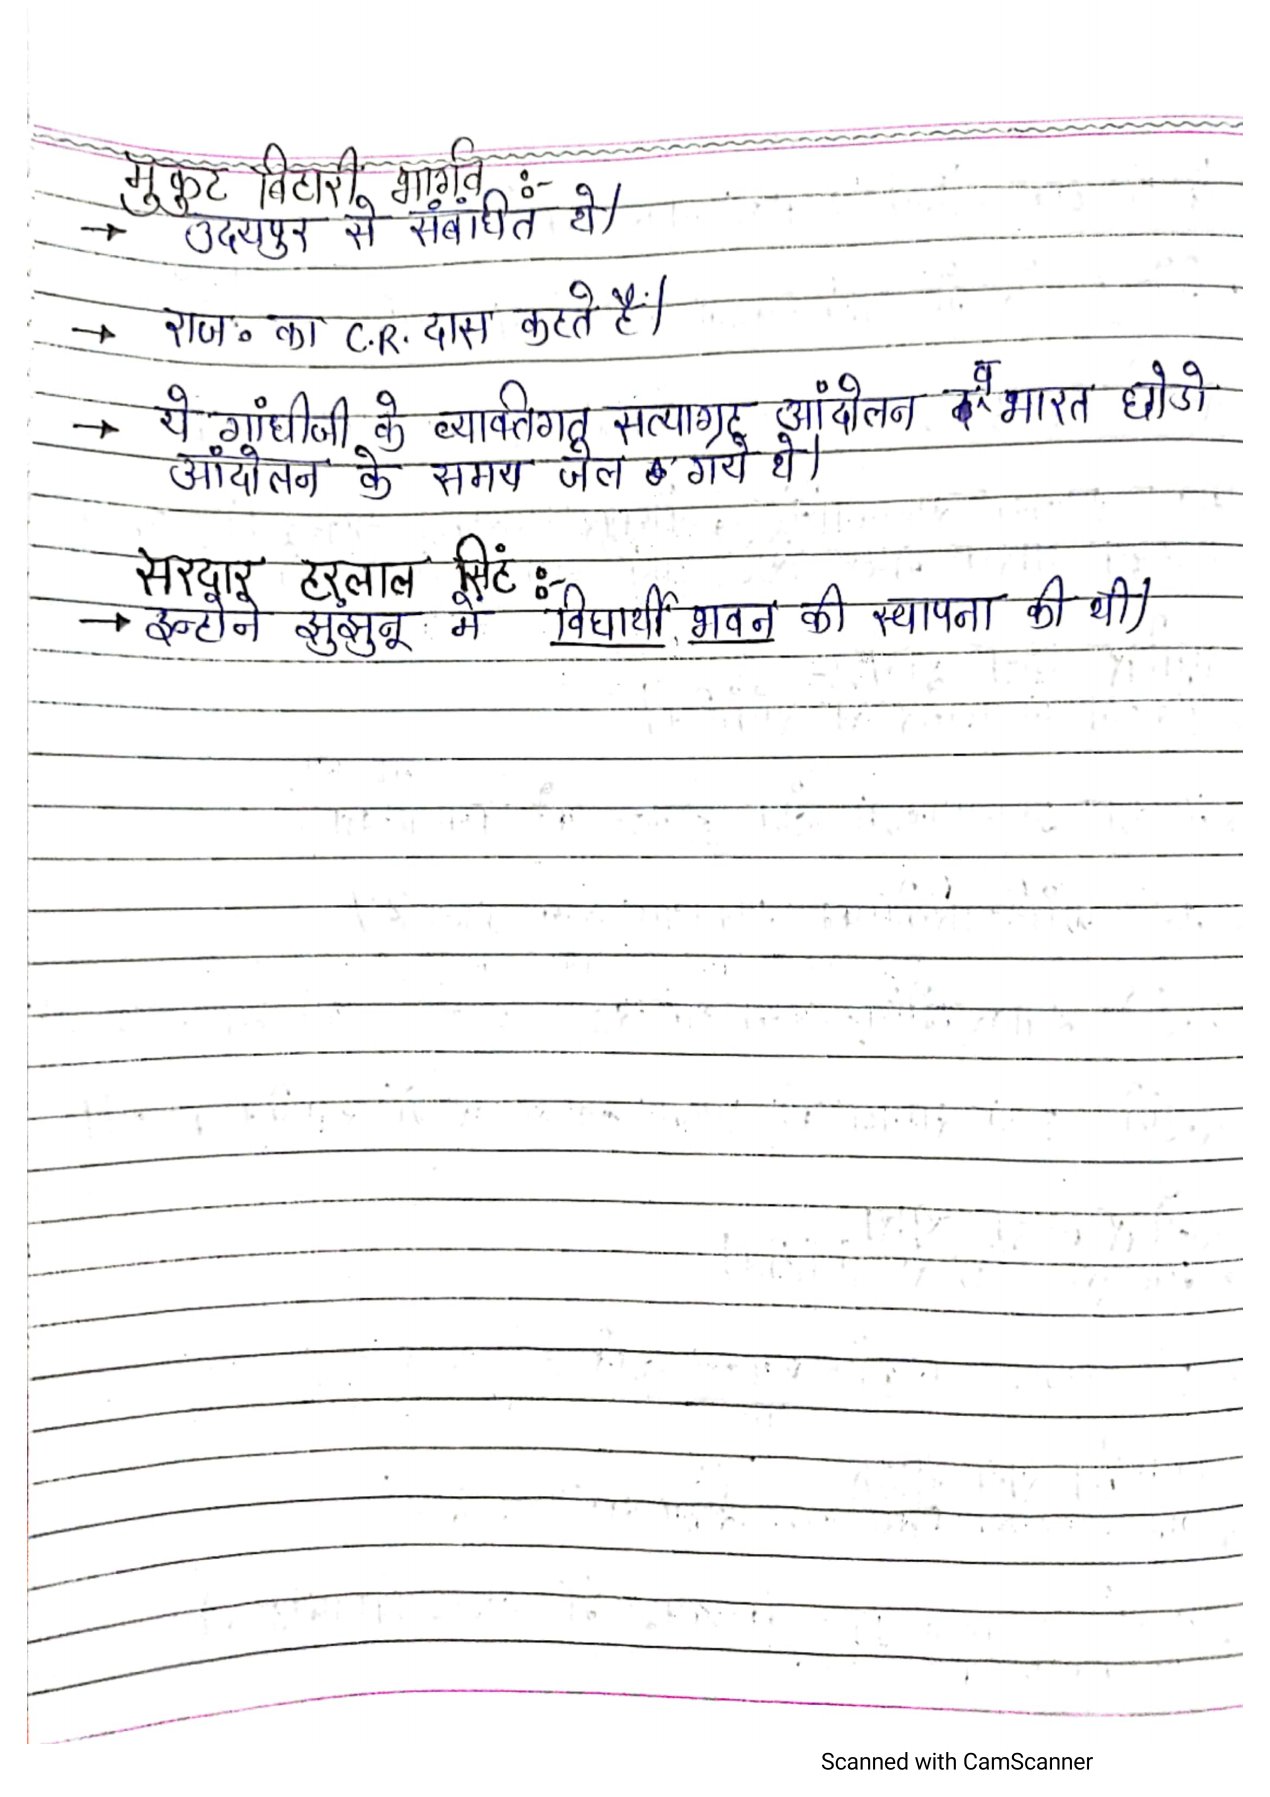 मुकुट बिहारी भार्गव :-
→ उदयपुर से संबंधित थे।
→ राज० का C.R. दास कहते हैं।
→ ये गांधीजी के व्यक्तिगत सत्याग्रह आंदोलन व भारत छोडो
आंदोलन के समय जेल गये थे।
सरदार हरलाल सिंह :-
→ इन्होने झुझुनू में विधार्थी भवन की स्थापना की थी।
Scanned with CamScanner